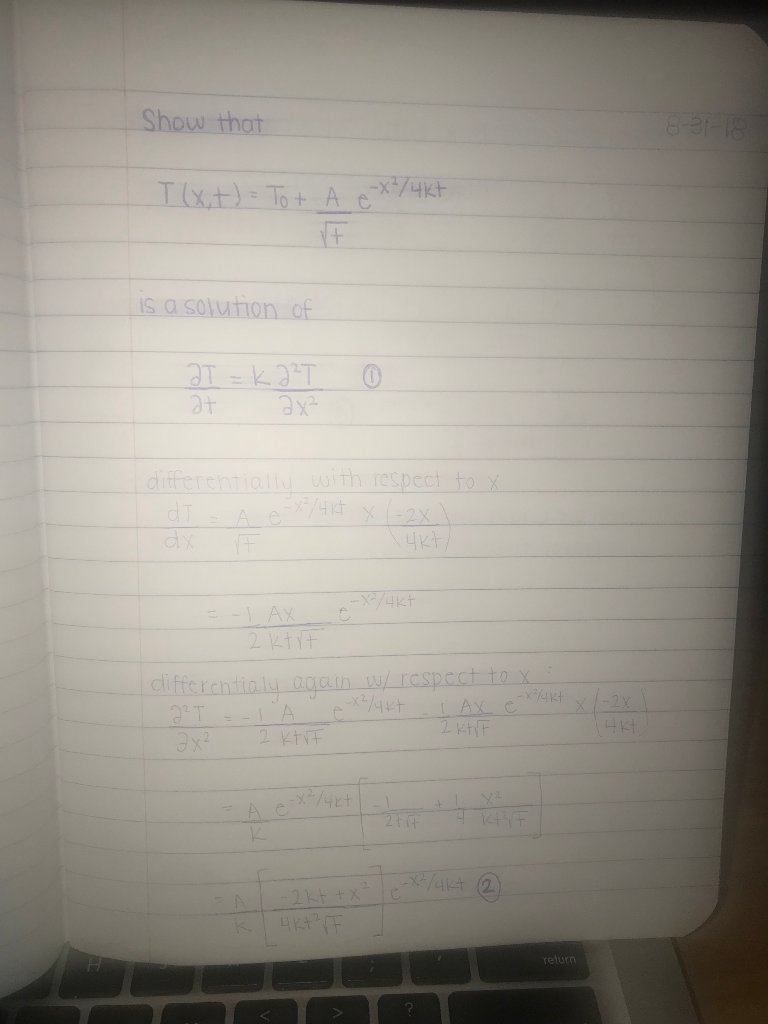 8-31-18
Show that
T(x,t) = T₀ + A/√t e^(-x²/4kt)
is a solution of
∂T/∂t = k ∂²T/∂x² ①
differentially with respect to x
dT/dx = A/√t e^(-x²/4kt) × (-2x/4kt)
= -1/2 Ax/kt√t e^(-x²/4kt)
differentialy again w/ respect to x :
∂²T/∂x² = -1/2 A/kt√t e^(-x²/4kt) - 1/2 Ax/kt√t e^(-x²/4kt) × (-2x/4kt)
= A/k e^(-x²/4kt) [-1/2t√t + 1/4 x²/kt²√t]
= A/k [-2kt + x²/4kt²√t] e^(-x²/4kt) ②
H J ; ' return
< > ?